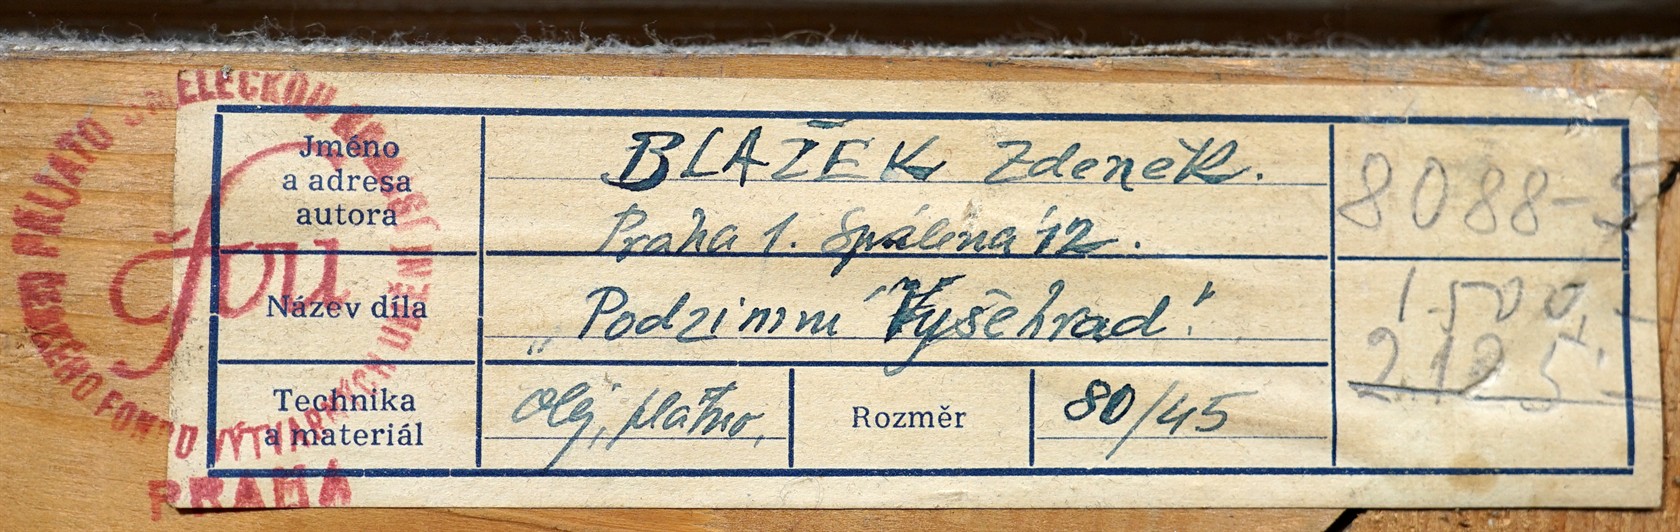 PŘIJATO UMĚLECKOU KOMISÍ
ČESKÉHO FONDU VÝTVARNÝCH UMĚNÍ
PRAHA
čfvu
Jméno
a adresa
autora
BLAŽEK Zdeněk.
Praha 1. Spálená 12.
Název díla
„Podzimní Vyšehrad"
Technika
a materiál
Olej, plátno,
Rozměr
80/45
8088-
1500,-
2125,-